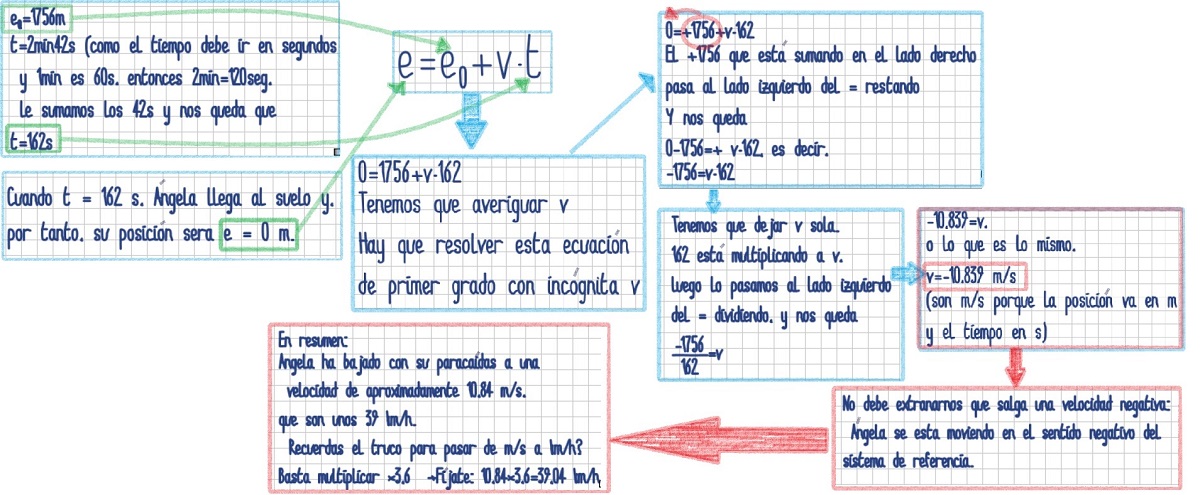 e₀=1756m
t=2min42s (como el tiempo debe ir en segundos
y 1min es 60s. entonces 2min=120seg.
Le sumamos los 42s y nos queda que
t=162s
Cuando t = 162 s. Ángela llega al suelo y.
por tanto. su posición sera e = 0 m.
e=e₀+v·t
0=1756+v·162
Tenemos que averiguar v
Hay que resolver esta ecuación
de primer grado con incógnita v
0=+1756+v·162
EL +1756 que está sumando en el lado derecho
pasa al lado izquierdo del = restando
Y nos queda
0-1756=+ v·162, es decir.
-1756=v·162
Tenemos que dejar v sola.
162 está multiplicando a v.
Luego lo pasamos al lado izquierdo
del = dividiendo. y nos queda
-1756/162=v
-10.839=v.
o lo que es lo mismo.
v=-10.839 m/s
(son m/s porque la posición va en m
y el tiempo en s)
No debe extranarnos que salga una velocidad negativa:
Ángela se esta moviendo en el sentido negativo del
sistema de referencia.
En resumen:
Angela ha bajado con su paracaídas a una
velocidad de aproximadamente 10.84 m/s.
que son unos 39 km/h.
Recuerdas el truco para pasar de m/s a km/h?
Basta multiplicar ×3.6 →Fíjate: 10.84×3.6=39.04 km/h.